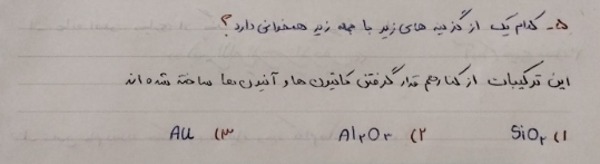 ۵- کدام یک از گزینه های زیر با جمله زیر همخوانی دارد؟
این ترکیبات از کنار هم قرار گرفتن کاتیون ها و آنیون ها ساخته شده اند
۱) SiO۲ ۲) Al۲O۳ ۳) Au